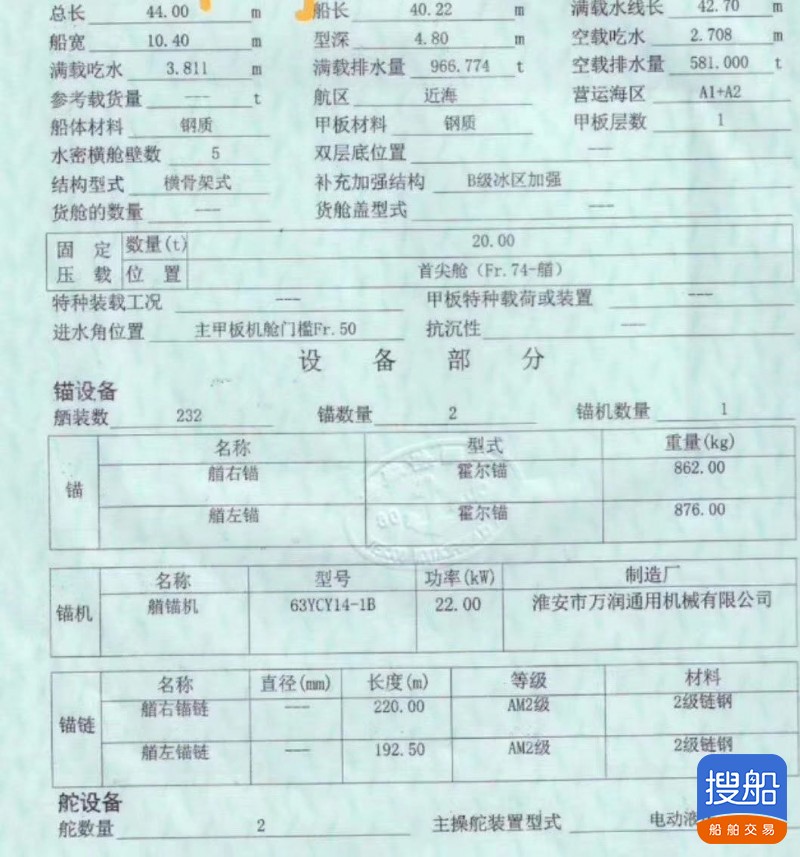 总长 44.00 m 船长 40.22 m 满载水线长 42.70 m
船宽 10.40 m 型深 4.80 m 空载吃水 2.708 m
满载吃水 3.811 m 满载排水量 966.774 t 空载排水量 581.000 t
参考载货量 --- t 航区 近海 营运海区 A1+A2
船体材料 钢质 甲板材料 钢质 甲板层数 1
水密横舱壁数 5 双层底位置 ---
结构型式 横骨架式 补充加强结构 B级冰区加强
货舱的数量 --- 货舱盖型式 ---
固定压载 数量(t) 20.00
位置 首尖舱（Fr.74-艏）
特种装载工况 --- 甲板特种载荷或装置 ---
进水角位置 主甲板机舱门槛Fr.50 抗沉性 ---
设备部分
锚设备
舾装数 232 锚数量 2 锚机数量 1
名称 型式 重量(kg)
锚 艏右锚 霍尔锚 862.00
艏左锚 霍尔锚 876.00
名称 型号 功率(kW) 制造厂
锚机 艏锚机 63YCY14-1B 22.00 淮安市万润通用机械有限公司
名称 直径(mm) 长度(m) 等级 材料
锚链 艏右锚链 --- 220.00 AM2级 2级链钢
艏左锚链 --- 192.50 AM2级 2级链钢
舵设备
舵数量 2 主操舵装置型式 电动液
搜船
船舶交易